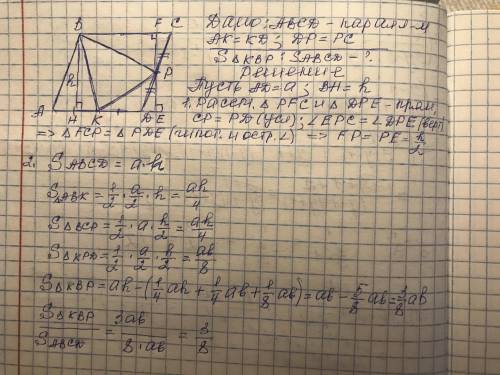 B F C
P
h
A H K D E
Дано: ABCD - паралл-м
AK = KD ; DP = PC
S△KBP : SABCD - ?
решение
Пусть AD = a ; BH = h
1. Рассм. △PFC и △DPE - прям.
CP = PD (усл); ∠FPC = ∠DPE (верт)
=> △FCP = △PDE (гипот. и остр. ∠) => FP = PE = h/2
2. SABCD = a·h
S△ABK = 1/2 · a/2 · h = ah/4
S△BCP = 1/2 · a · h/2 = ah/4
S△KPD = 1/2 · a/2 · h/2 = ab/8
S△KBP = ah - (1/4 ah + 1/4 ab + 1/8 ab) = ab - 5/8 ab = 3/8 ab
S△KBP/SABCD = 3ab/8·ab = 3/8